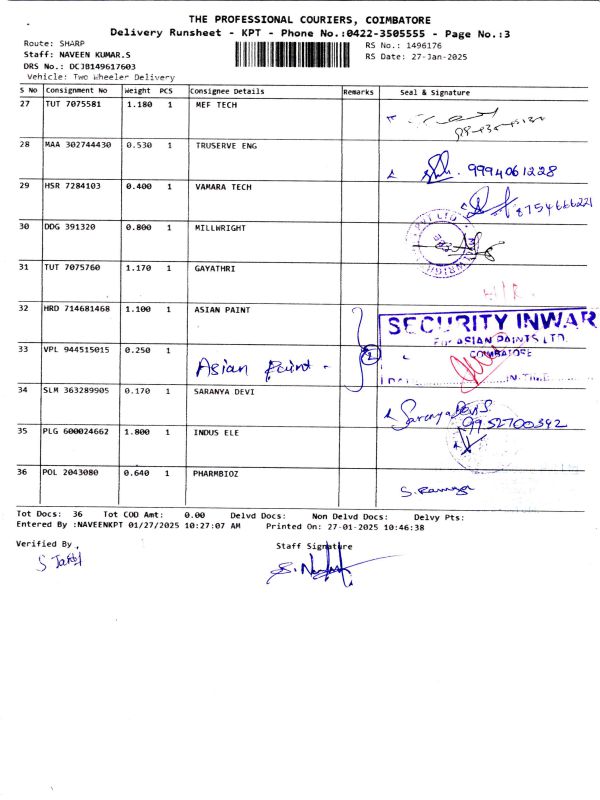 THE PROFESSIONAL COURIERS, COIMBATORE
Delivery Runsheet - KPT - Phone No.:0422-3505555 - Page No.:3
Route: SHARP
RS No.: 1496176
Staff: NAVEEN KUMAR.S
RS Date: 27-Jan-2025
DRS No.: DCJB149617603
Vehicle: Two Wheeler Delivery
S No Consignment No Weight PCS Consignee Details Remarks Seal & Signature
27 TUT 7075581 1.180 1 MEF TECH
28 MAA 302744430 0.530 1 TRUSERVE ENG 9994061228
29 HSR 7284103 0.400 1 VAMARA TECH 8754666221
30 DDG 391320 0.800 1 MILLWRIGHT
31 TUT 7075760 1.170 1 GAYATHRI
32 HRD 714681468 1.100 1 ASIAN PAINT SECURITY INWAR
For ASIAN PAINTS LTD.
33 VPL 944515015 0.250 1 Asian Paint 2 COIMBATORE
IN TIME
34 SLM 363289905 0.170 1 SARANYA DEVI Saranya Devi S.
9952700342
35 PLG 600024662 1.800 1 INDUS ELE
36 POL 2043080 0.640 1 PHARMBIOZ
Tot Docs: 36 Tot COD Amt: 0.00 Delvd Docs: Non Delvd Docs: Delvy Pts:
Entered By :NAVEENKPT 01/27/2025 10:27:07 AM Printed On: 27-01-2025 10:46:38
Verified By
Staff Signature